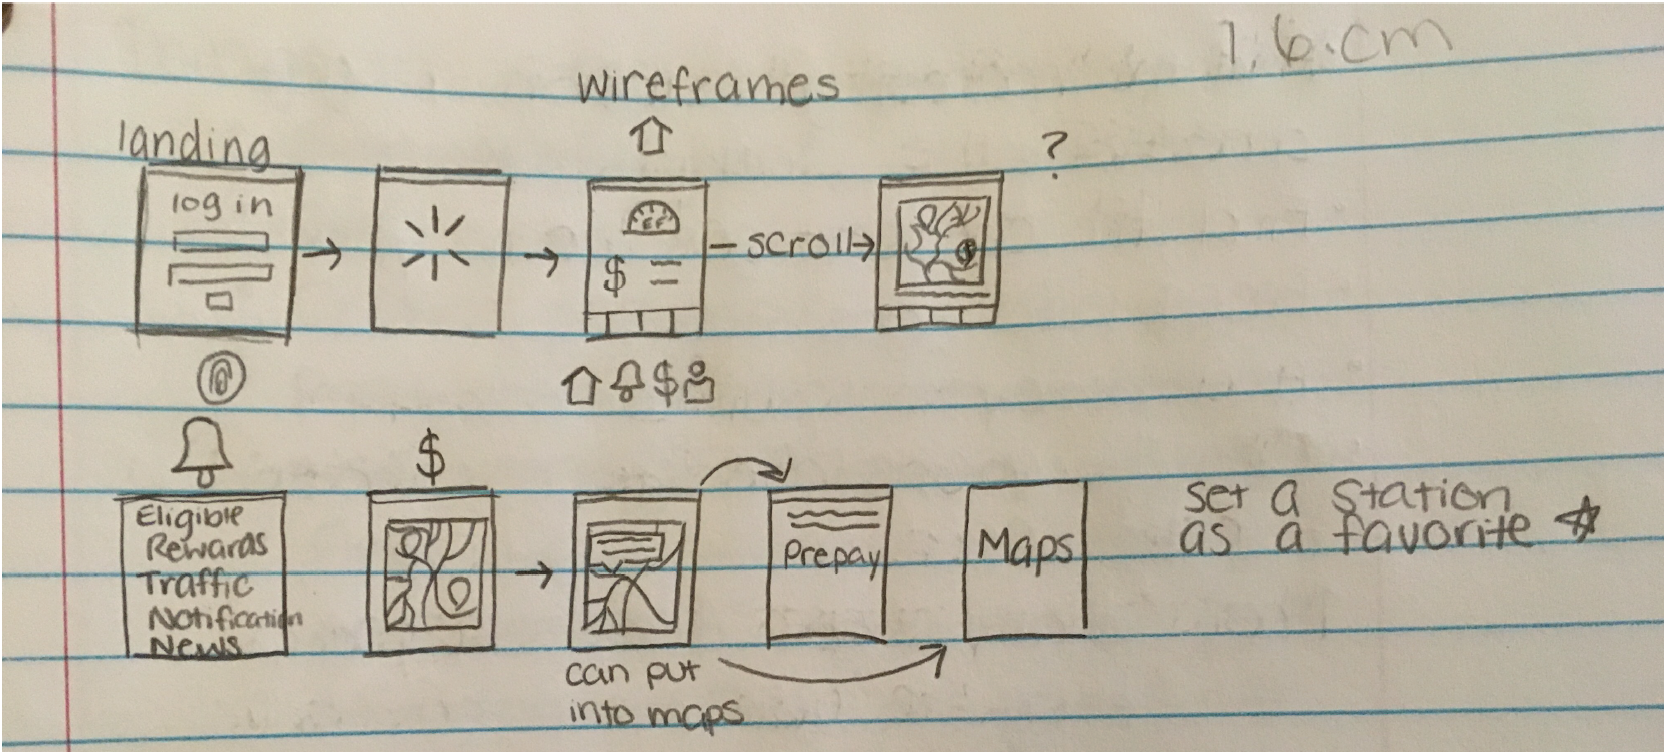 1.6.cm
wireframes
landing
?
log in
$
scroll
$
$
Eligible
Rewards
Traffic
Notification
News
Prepay
Maps
Set a Station
as a favorite
can put
into maps